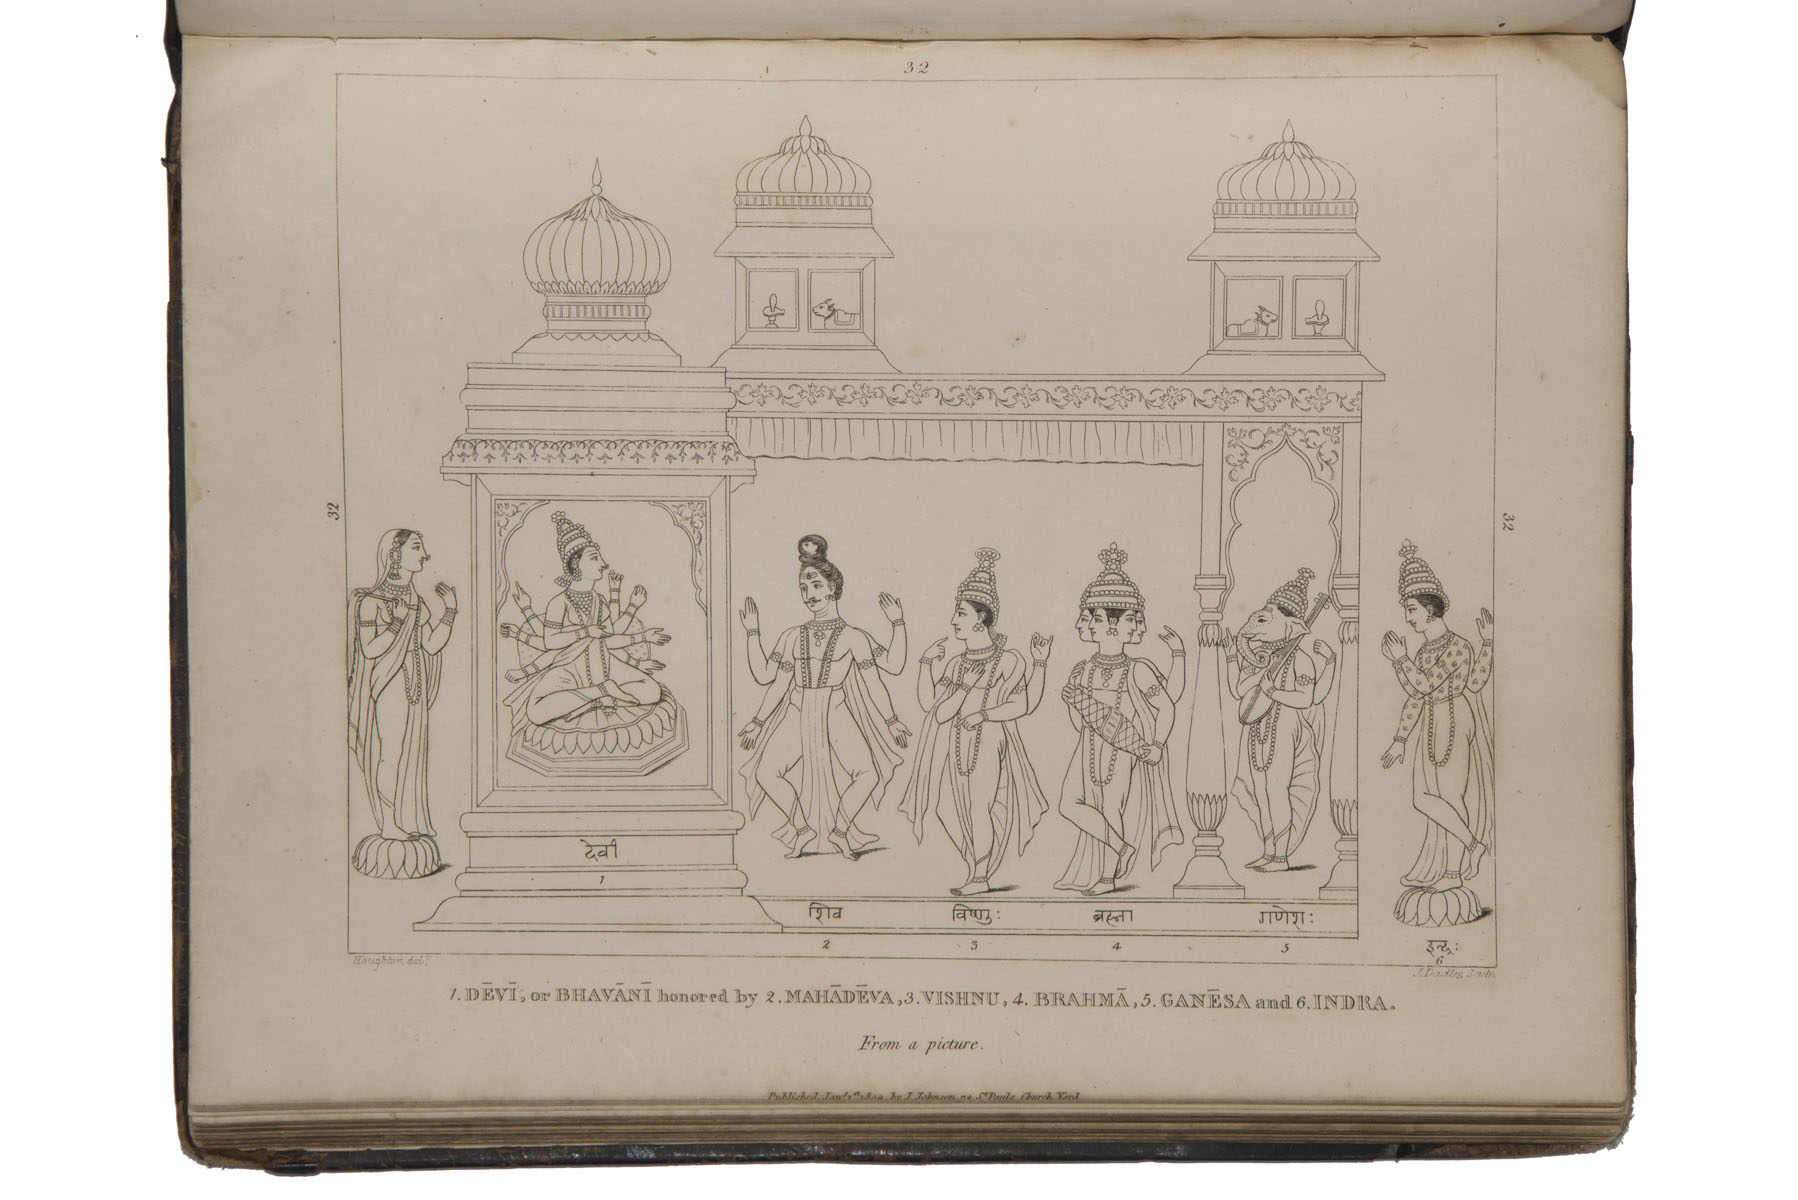 32
32
32
देवी
1
शिव
विष्णुः
ब्रह्मा
गणेशः
2
3
4
5
इन्द्रः
6
Houghton del.
J. Dadley Sculp.
1. DĒVĪ, or BHAVĀNĪ honored by 2. MAHĀDĒVA, 3. VISHNU, 4. BRAHMĀ, 5. GANĒSA and 6. INDRA.
From a picture.
Published Jany. 1st. 1809 by J. Johnson 72 St. Pauls Church Yard